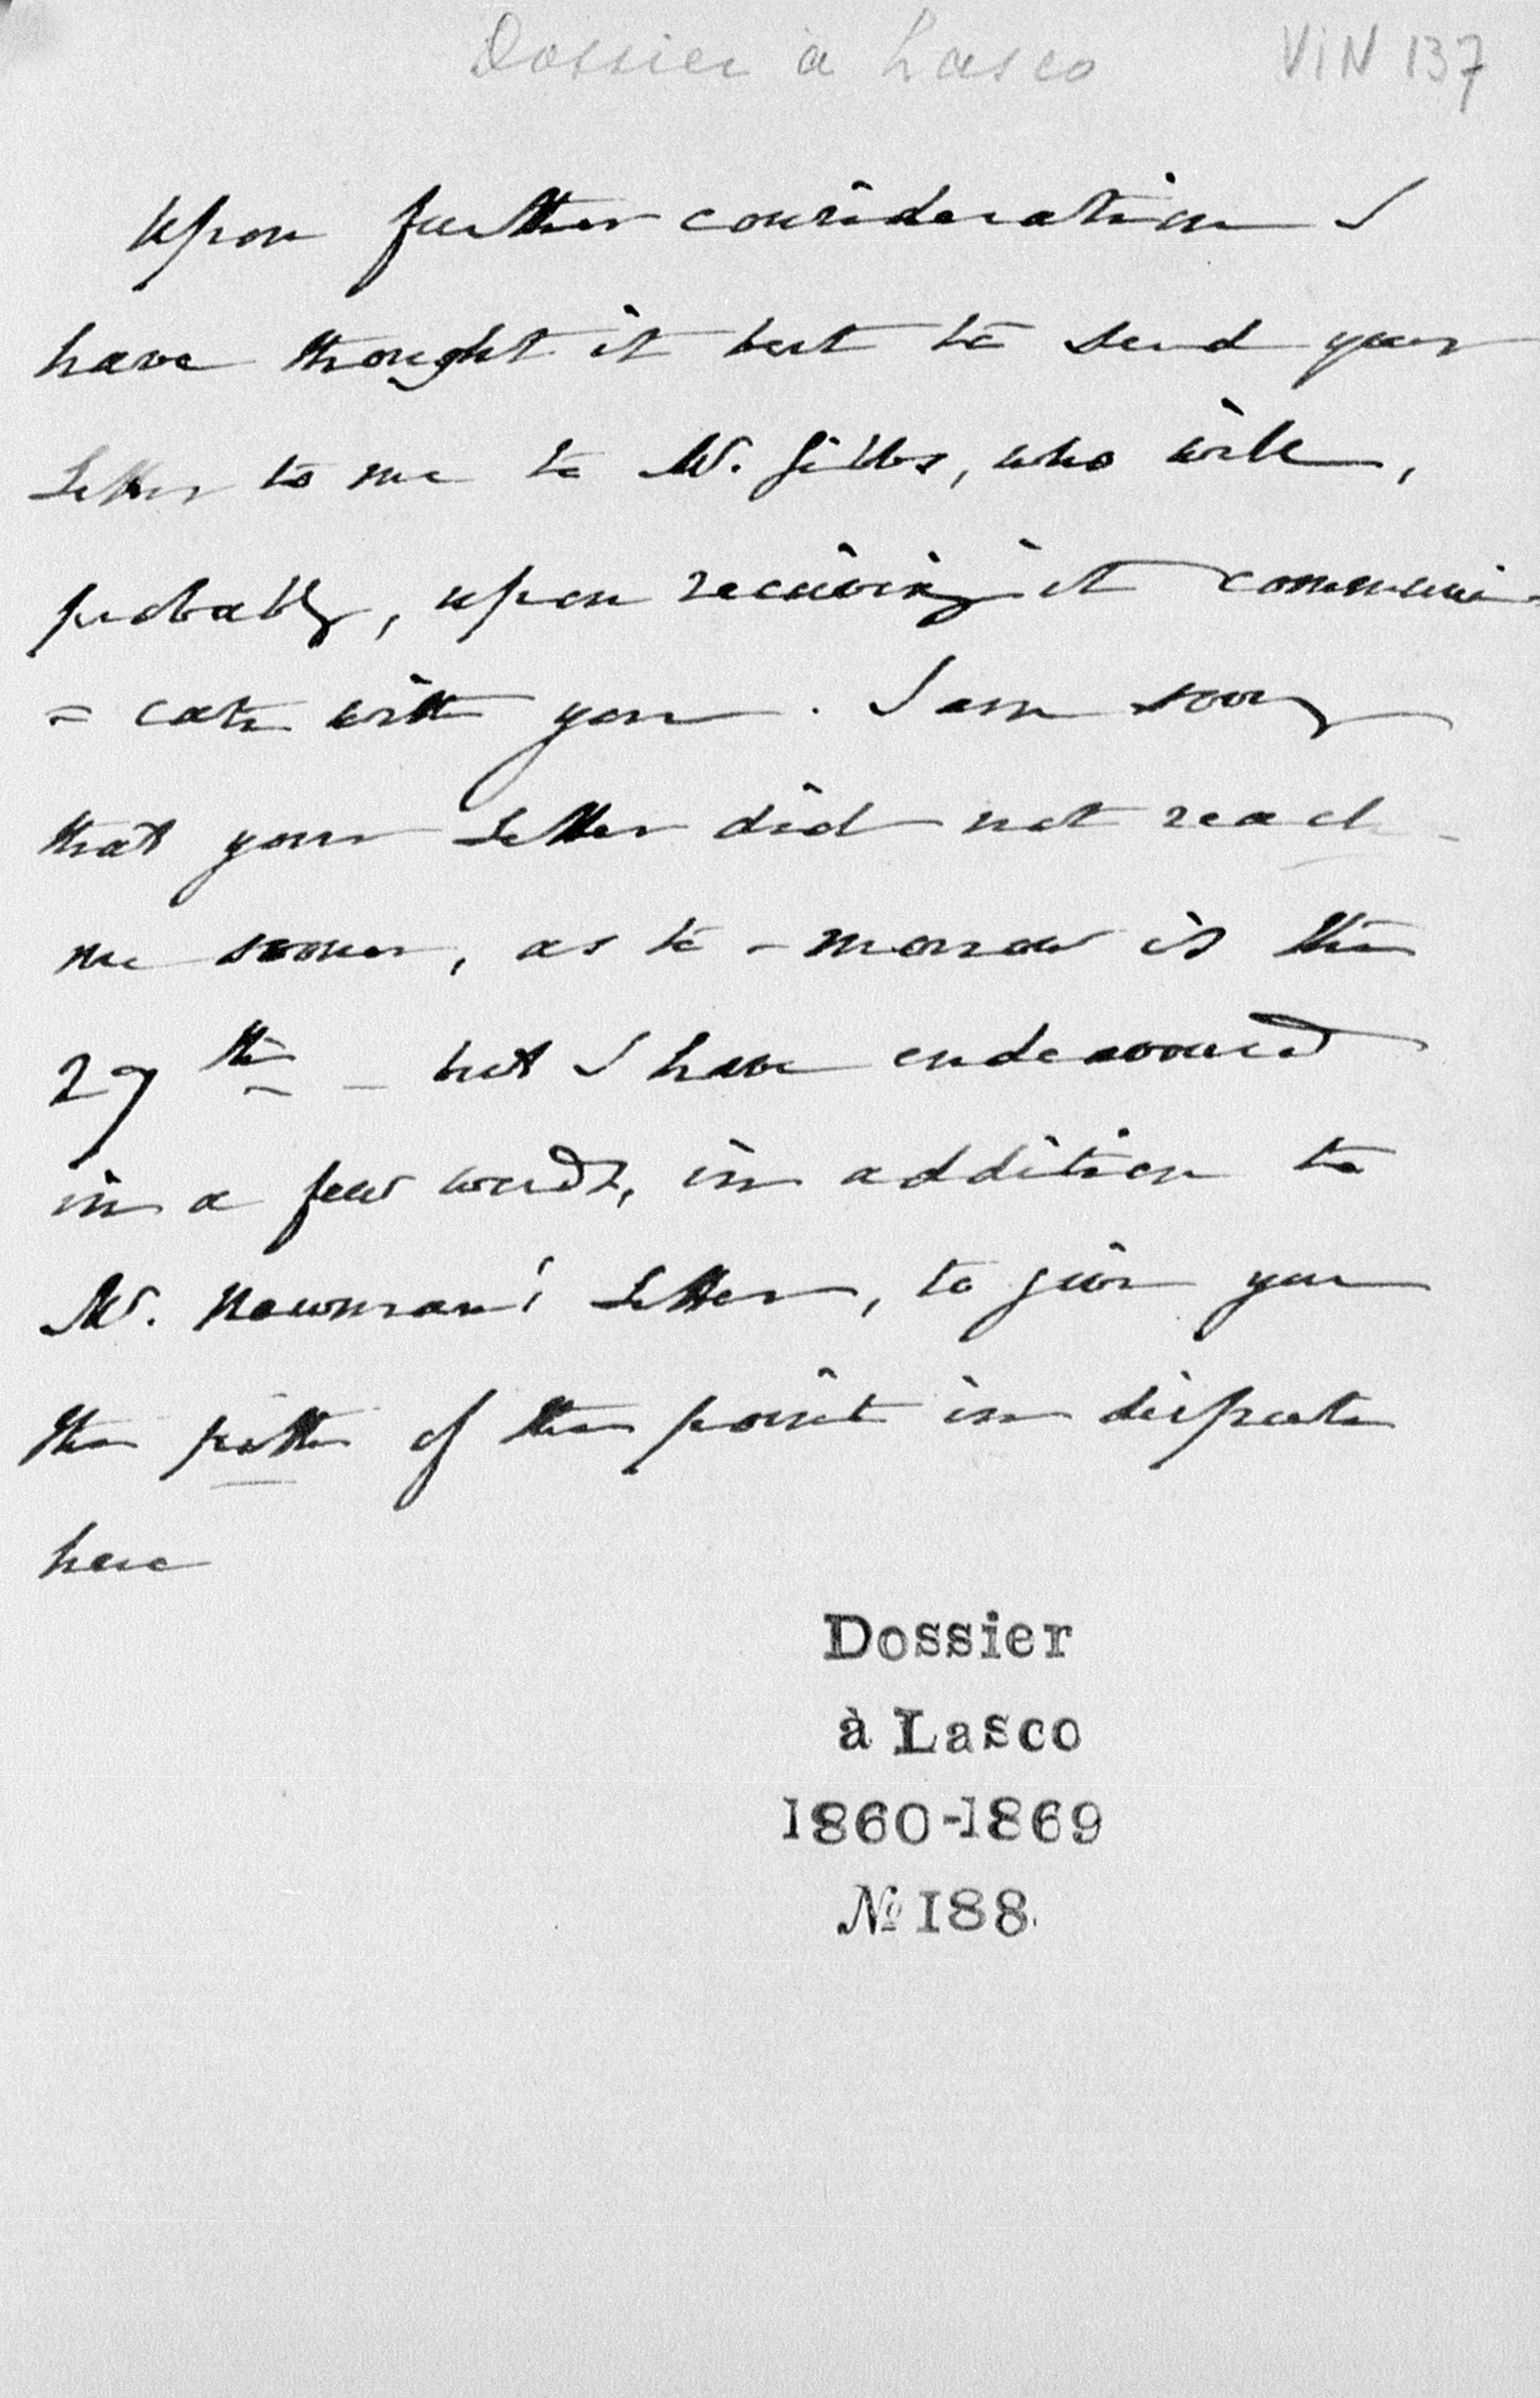 Dossier à Lasco VIN 137
Upon further consideration I
have thought it best to send your
Letter to me to Mr. Gibbs, who will,
probably, upon receiving it communi-
= cate with you. I am sorry
that your Letter did not reach
me sooner, as to-morrow is the
27th - but I have endeavoured
in a few words, in addition to
Mr. Newman's Letter, to give you
the pith of the point in dispute
here
Dossier
à Lasco
1860-1869
№ 188.